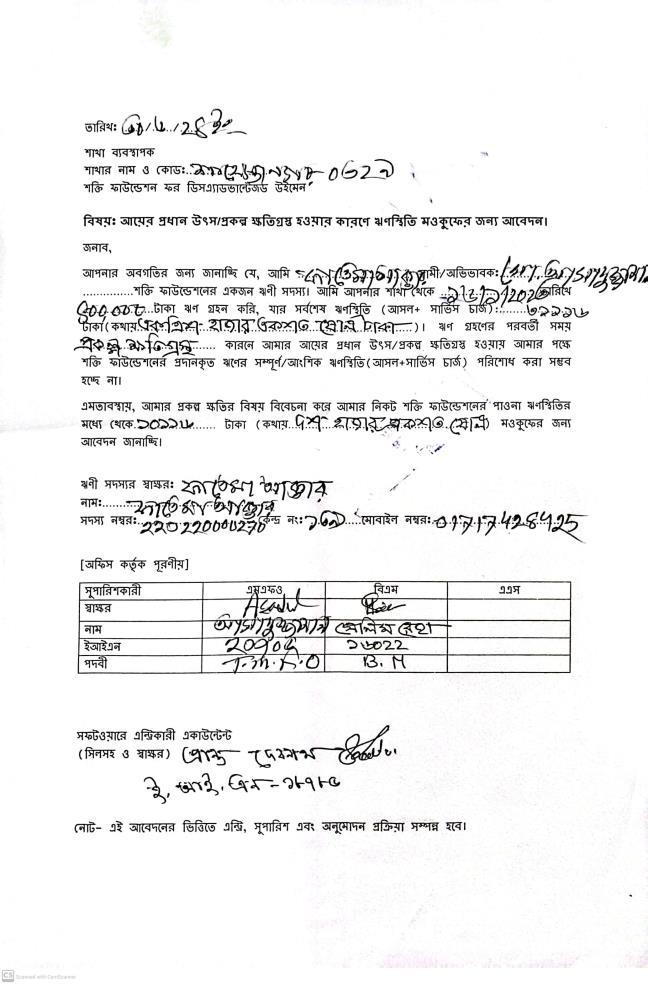 তারিখঃ
শাখা ব্যবস্থাপক
শাখার নাম ও কোডঃ
শক্তি ফাউন্ডেশন ফর ডিসএ্যাডভান্টেজড উইমেন
বিষয়ঃ আয়ের প্রধান উৎস/প্রকল্প ক্ষতিগ্রস্থ হওয়ার কারণে ঋণস্থিতি মওকুফের জন্য আবেদন।
জনাব,
আপনার অবগতির জন্য জানাচ্ছি যে, আমি ফাতেমা আক্তার স্বামী/অভিভাবক:
শক্তি ফাউন্ডেশনের একজন ঋণী সদস্য। আমি আপনার শাখা থেকে তারিখে
টাকা ঋণ গ্রহন করি, যার সর্বশেষ ঋণস্থিতি (আসল+ সার্ভিস চার্জ): ৩১১১৬
টাকা(কথায় একত্রিশ হাজার একশত ষোল টাকা)। ঋণ গ্রহণের পরবর্তী সময়
প্রকল্প ক্ষতিগ্রস্থ কারনে আমার আয়ের প্রধান উৎস/প্রকল্প ক্ষতিগ্রস্থ হওয়ায় আমার পক্ষে
শক্তি ফাউন্ডেশনের প্রদানকৃত ঋণের সম্পূর্ণ/আংশিক ঋণস্থিতি(আসল+সার্ভিস চার্জ) পরিশোধ করা সম্ভব
হচ্ছে না।
এমতাবস্থায়, আমার প্রকল্প ক্ষতির বিষয় বিবেচনা করে আমার নিকট শক্তি ফাউন্ডেশনের পাওনা ঋণস্থিতির
মধ্যে থেকে ১০১১৬ টাকা (কথায় দশ হাজার একশত ষোল) মওকুফের জন্য
আবেদন জানাচ্ছি।
ঋণী সদস্যর স্বাক্ষরঃ ফাতেমা আক্তার
নামঃ ফাতেমা আক্তার
সদস্য নম্বরঃ কেন্দ্র নংঃ মোবাইল নম্বরঃ 01717428425
[অফিস কর্তৃক পূরণীয়]
সুপারিশকারী এমএফও বিএম এএস
স্বাক্ষর
নাম আসাদুজ্জামান
ইআইএন ১৬০২২
পদবী B.M
সফটওয়ারে এন্ট্রিকারী একাউন্টেন্ট
(সিলসহ ও স্বাক্ষর)
ই, আই, এন -
নোট- এই আবেদনের ভিত্তিতে এন্ট্রি, সুপারিশ এবং অনুমোদন প্রক্রিয়া সম্পন্ন হবে।
CS Scanned with CamScanner